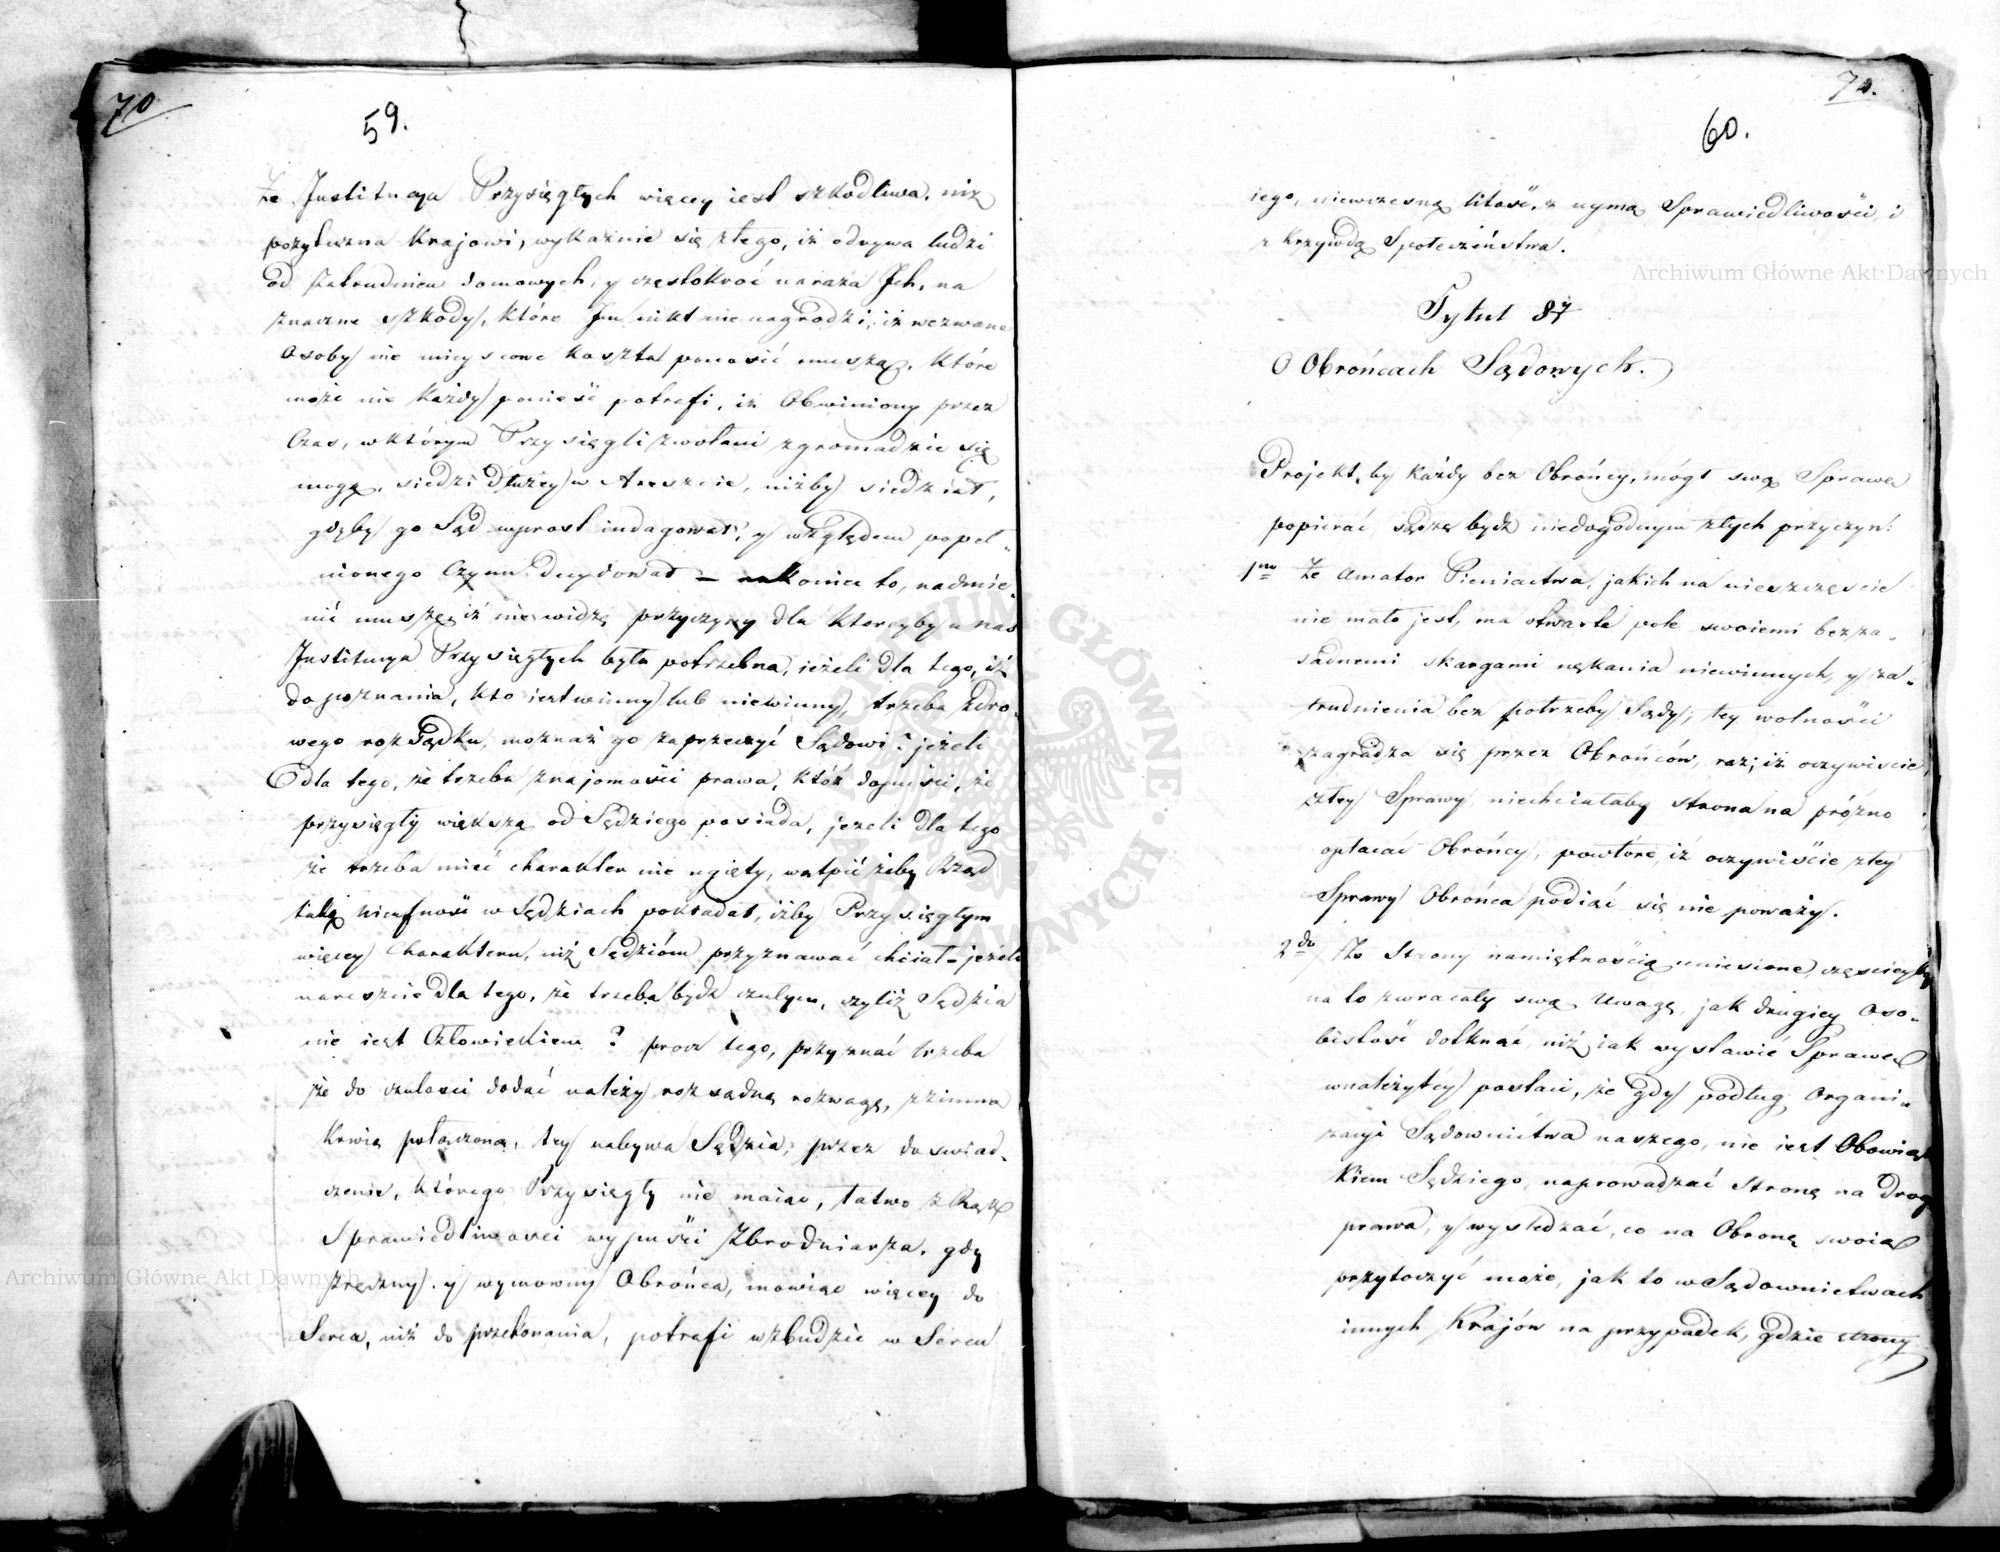 70
59.
Że Institucya Przysięgłych więcey iest szkodliwa, niż
pożyteczna Krajowi, wykaźuie się ztego, iż odrywa ludzi
od zatrudnien domowych, y częstokroć naraża Jch, na
znaczne szkody, które Jm nikt nie nagrodzi, iż wezwane
Osoby nie mieyscowe koszta ponosić muszą, które
może nie każdy ponieść potrafi, iż Obwiniony przez
Czas, w którym Przysięgli zwołani zgromadzić się
mogą, siedzi dłużey w Areszcie, niżby siedział,
gdyby go Sąd wprost indagował, y względem popeł-
nionego Czynu decydował – nakoniec to, nadmie-
nić muszę, iż nie widzę przyczyny dla któreyby u nas
Institucya Przysięgłych była potrzebna, ieżeli dla tego, iż
do poznania, kto iest winny lub niewinny, trzeba zdro-
wego rozsądku, możnaż go zaprzeczyć Sądowi? jeżeli
dla tego, że trzeba znajomości prawa, któż dopuści, że
przysięgły większą od Sędziego posiada, jeżeli dla tego
że trzeba mieć charakter nie ugięty, wątpić żeby Rząd
taką nieufność w Sędziach pokładał, iżby Przysięgłym
więcey Charakteru, niż Sędzióm przyznawać chciał – jeżeli
nareszcie dla tego, że trzeba bydź czułym, czyliż Sędzia
nie iest Człowiekiem? procz tego, przyznać trzeba
że do czułosci dodać należy rozsądną rozwagę, z zimną
krwią połączoną, tey nabywa Sędzia, przez doswiad-
czenie, którego Przysięgły nie maiąc, łatwo z Rąk
Sprawiedliwości wypuści Zbrodniarza, gdy
zręczny y wymowny Obrońca, mowiąc więcey do
Serca, niż do przekonania, potrafi wzbudzić w Sercu
70.
60.
iego, niewczesną litość, z uymą Sprawiedliwości, i
z krzywdą Społeczeństwa.
Tytuł 87
O Obrońcach Sądowych.
Projekt, by każdy bez Obrońcy, mógł swą Sprawę
popierać, sądzę bydź niedogodnym ztych przyczyn:
1mo Że Amator Pieniactwa, jakich na nieszczęscie
nie mało jest, ma otwarte pole swoiemi bezza-
sadnemi skargami nękania niewinnych, y za-
trudnienia bez potrzeby Sądy; tey wolności
zagradza się przez Obrońców, raz, iż oczywiscie
złey Sprawy niechciałaby strona na próżno
opłacać Obrońcy, powtóre, iż oczywiście złey
Sprawy Obrońca podiąć się nie poważy.
2do Że Strony namiętnością uniesione, częsciey by
na to zwracały swą Uwagę, jak drugiey Oso-
bistość dotknąć, niż jak wystawić Sprawę
wnależytey postaci, że gdy podług Organi-
zacyi Sądownictwa naszego, nie iest Obowiąz
kiem Sędziego, naprowadzać Stronę na drog
prawa, y wysledzać, co na Obronę swoią
przytoczyć może, jak to w Sądownictwach
innych Krajów na przypadek, gdzie strony
Archiwum Główne Akt Dawnych
Archiwum Główne Akt Dawnych